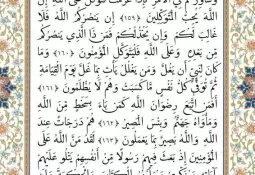 اللَّهَ يُحِبُّ الْمُتَوَكِّلِينَ ﴿١٥٩﴾ إِنْ يَنْصُرْكُمُ اللَّهُ فَلَا
غَالِبَ لَكُمْ وَإِنْ يَخْذُلْكُمْ فَمَنْ ذَا الَّذِي يَنْصُرُكُمْ
مِنْ بَعْدِهِ وَعَلَى اللَّهِ فَلْيَتَوَكَّلِ الْمُؤْمِنُونَ ﴿١٦٠﴾ وَمَا
كَانَ لِنَبِيٍّ أَنْ يَغُلَّ وَمَنْ يَغْلُلْ يَأْتِ بِمَا غَلَّ يَوْمَ الْقِيَامَةِ
ثُمَّ تُوَفَّى كُلُّ نَفْسٍ مَا كَسَبَتْ وَهُمْ لَا يُظْلَمُونَ ﴿١٦١﴾
أَفَمَنِ اتَّبَعَ رِضْوَانَ اللَّهِ كَمَنْ بَاءَ بِسَخَطٍ مِنَ اللَّهِ
وَمَأْوَاهُ جَهَنَّمُ وَبِئْسَ الْمَصِيرُ ﴿١٦٢﴾ هُمْ دَرَجَاتٌ عِنْدَ
اللَّهِ وَاللَّهُ بَصِيرٌ بِمَا يَعْمَلُونَ ﴿١٦٣﴾ لَقَدْ مَنَّ اللَّهُ عَلَى
الْمُؤْمِنِينَ إِذْ بَعَثَ فِيهِمْ رَسُولًا مِنْ أَنْفُسِهِمْ يَتْلُو عَلَيْهِمْ